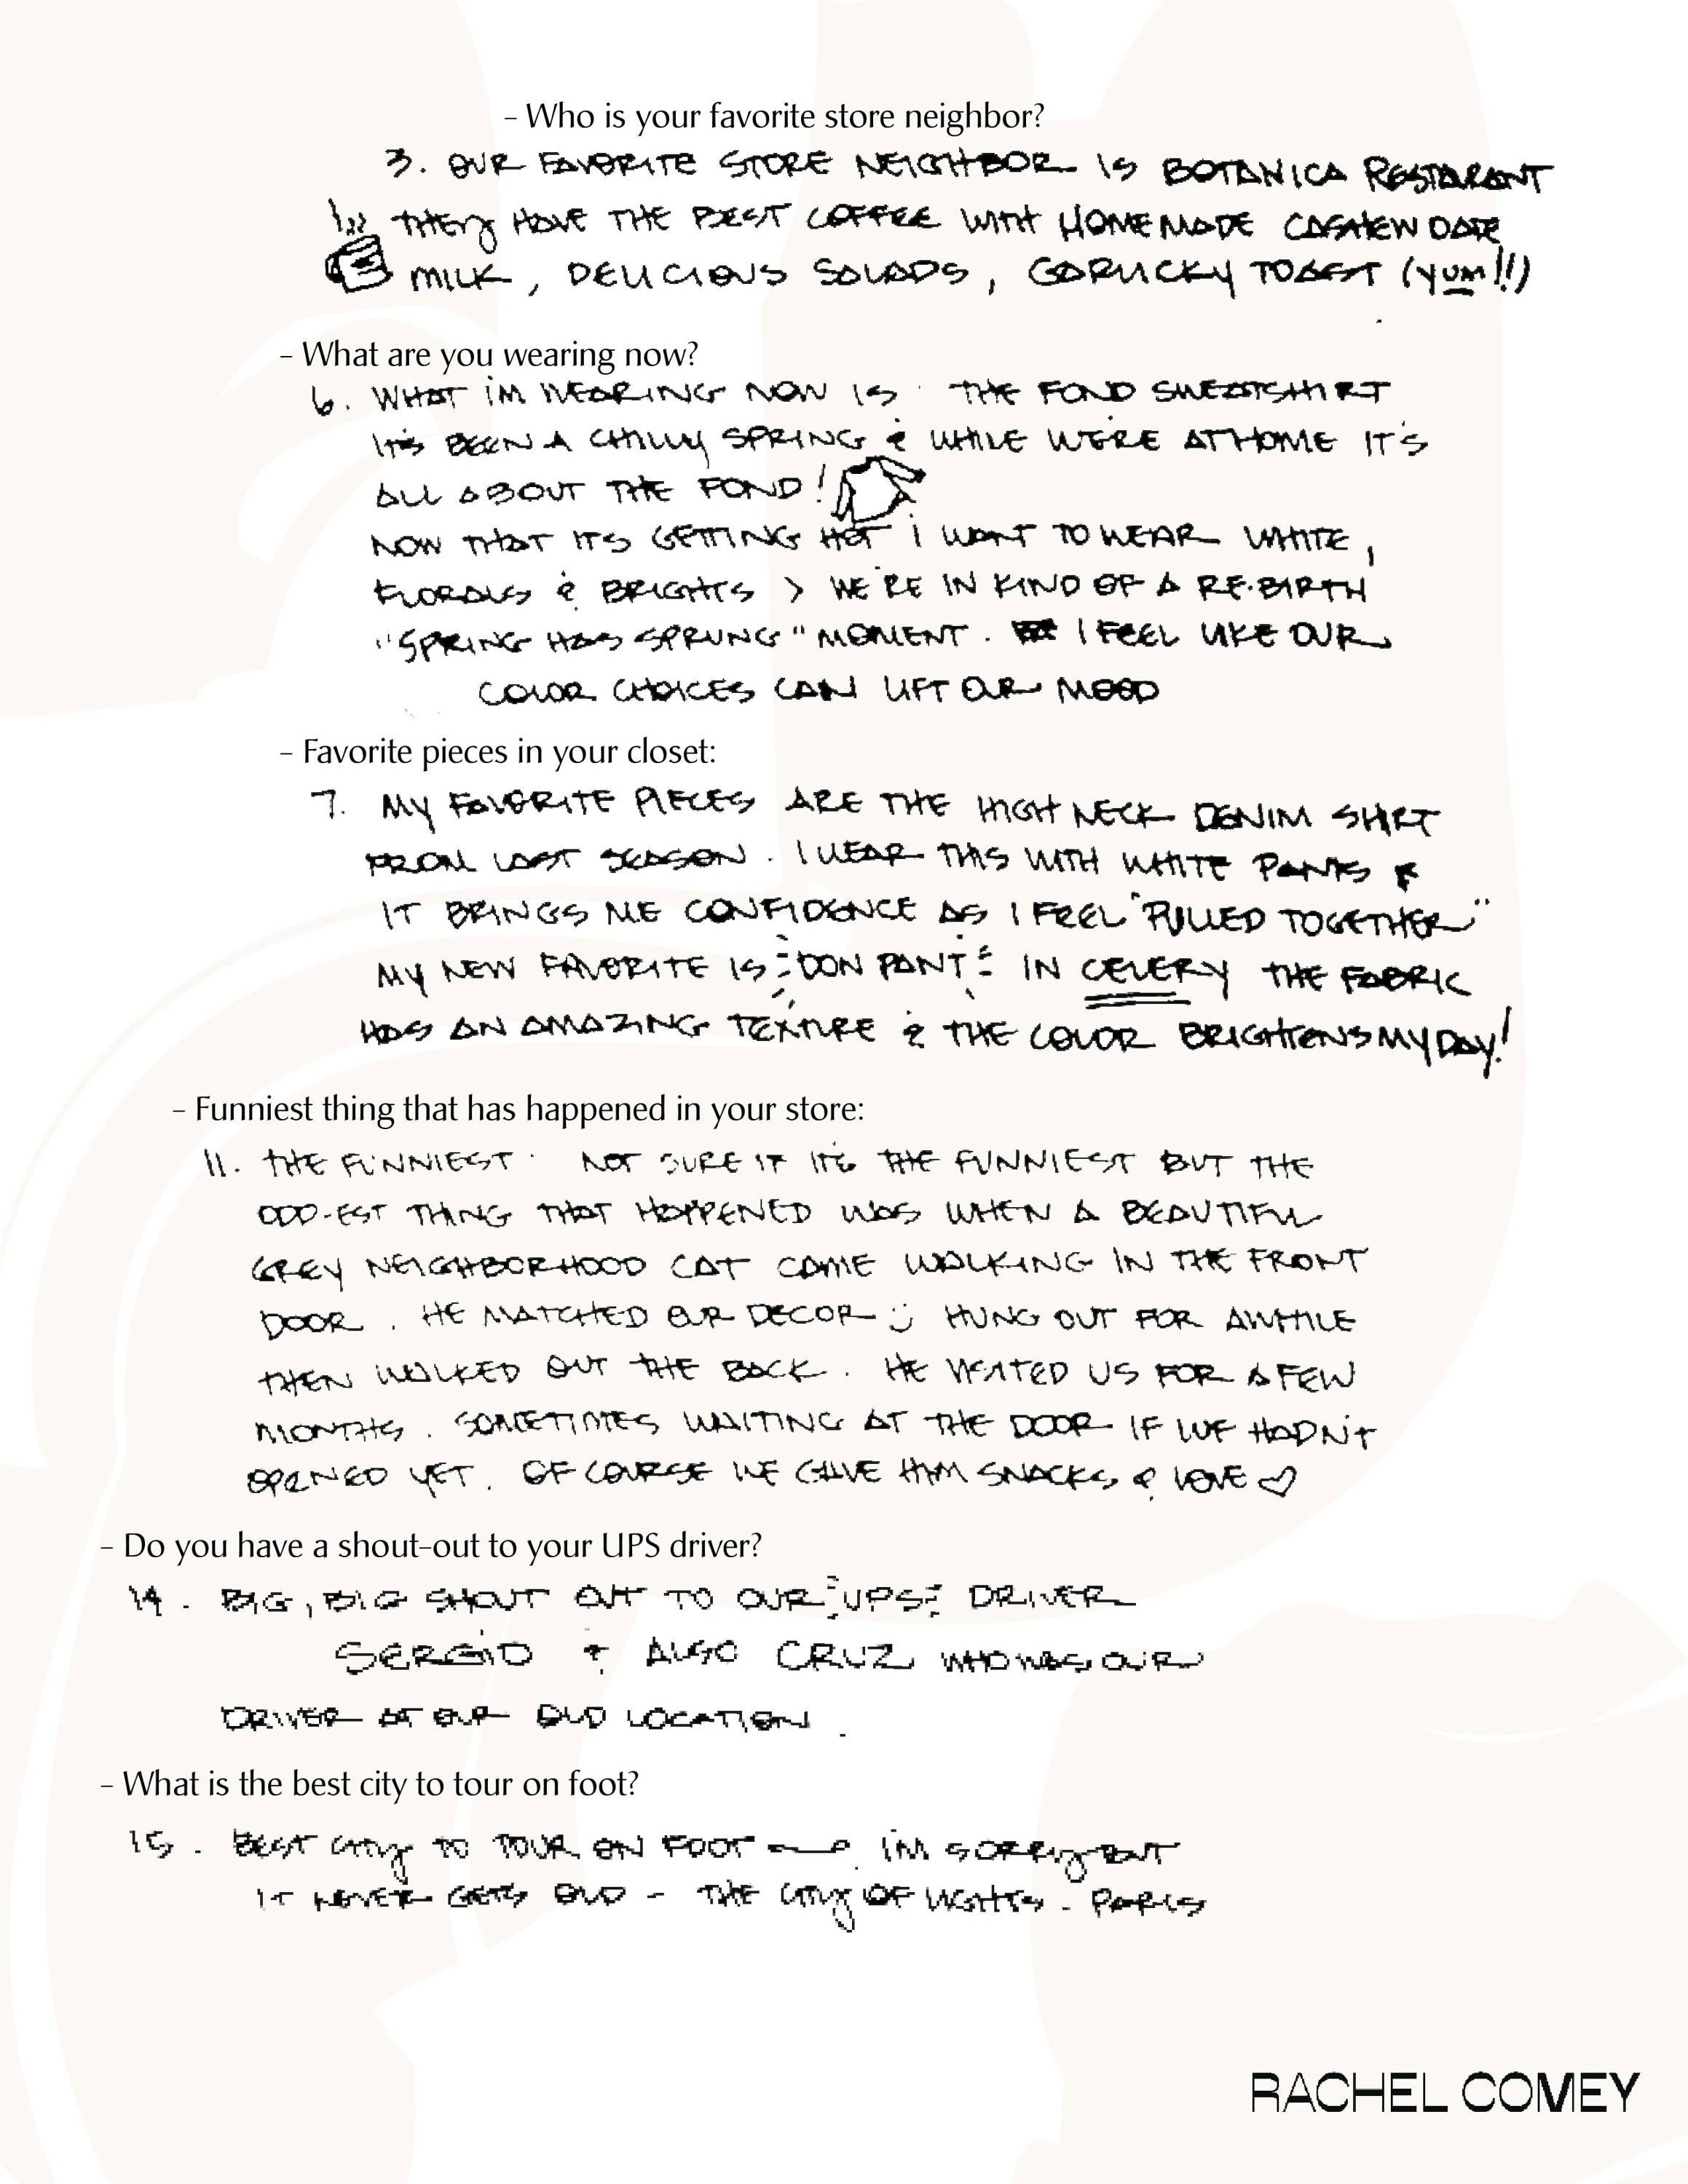 – Who is your favorite store neighbor?
3. OUR FAVORITE STORE NEIGHBOR IS BOTANICA RESTARANT
THEY HAVE THE BEST COFFEE WITH HOMEMADE CASHEW DATE
MILK, DELICIOUS SALADS, GARLICKY TOAST (YUM!!)
– What are you wearing now?
6. WHAT IM WEARING NOW IS THE FOND SWEATSHIRT
IT'S BEEN A CHILLY SPRING & WHILE WE'RE AT HOME IT'S
ALL ABOUT THE FOND!
NOW THAT IT'S GETTING HOT I WANT TO WEAR WHITE,
FLORALS & BRIGHTS > WE'RE IN KIND OF A RE-BIRTH
"SPRING HAS SPRUNG" MOMENT. I FEEL LIKE OUR
COLOR CHOICES CAN LIFT OUR MOOD
– Favorite pieces in your closet:
7. MY FAVORITE PIECES ARE THE HIGH NECK DENIM SHIRT
FROM LAST SEASON. I WEAR THIS WITH WHITE PANTS &
IT BRINGS ME CONFIDENCE AS I FEEL "PULLED TOGETHER"
MY NEW FAVORITE IS DON PANT IN CELERY THE FABRIC
HAS AN AMAZING TEXTURE & THE COLOR BRIGHTENS MY DAY!
– Funniest thing that has happened in your store:
11. THE FUNNIEST NOT SURE IF IT'S THE FUNNIEST BUT THE
ODD-EST THING THAT HAPPENED WAS WHEN A BEAUTIFUL
GREY NEIGHBORHOOD CAT CAME WALKING IN THE FRONT
DOOR. HE MATCHED OUR DECOR :) HUNG OUT FOR AWHILE
THEN WALKED OUT THE BACK. HE VISITED US FOR A FEW
MONTHS. SOMETIMES WAITING AT THE DOOR IF WE HADN'T
OPENED YET. OF COURSE WE GAVE HIM SNACKS & LOVE ♡
– Do you have a shout-out to your UPS driver?
14. BIG, BIG SHOUT OUT TO OUR UPS DRIVER
SERGIO & ALSO CRUZ WHO WAS OUR
DRIVER AT OUR OLD LOCATION.
– What is the best city to tour on foot?
15. BEST CITY TO TOUR ON FOOT — IM SORRY BUT
IT NEVER GETS OLD – THE CITY OF LIGHTS – PARIS
RACHEL COMEY